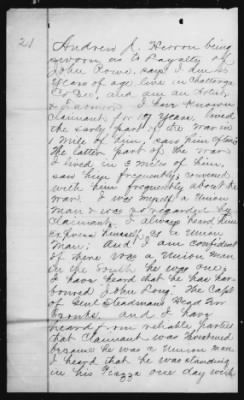 21
Andrew J. Herron being
sworn as to Loyalty of
John Rowe, says I am 50
Years of age live in Chattooga
Co Geo. and am an Artist
& Farmer I have Known
claimant for 19 years. lived
the early part of the war in
1 Mile of him, saw him often
The latter part of the war
I lived in 3 miles of him,
saw him frequently, convered
with him frequently about the
war. I was myself a Union
man & was so regarded by
claimant. I always heard him
express himself as a Union
Man; And I am confident
if there was a Union man
in the South he was one,
I have heard that he has har-
boured John Long The Capt
of Genl Steadmans Head Qr
Scouts. And I have
heard from reliable parties
that claimant was threatened
because he was a Union man
I heard that he was standing
in his Piazza one day with